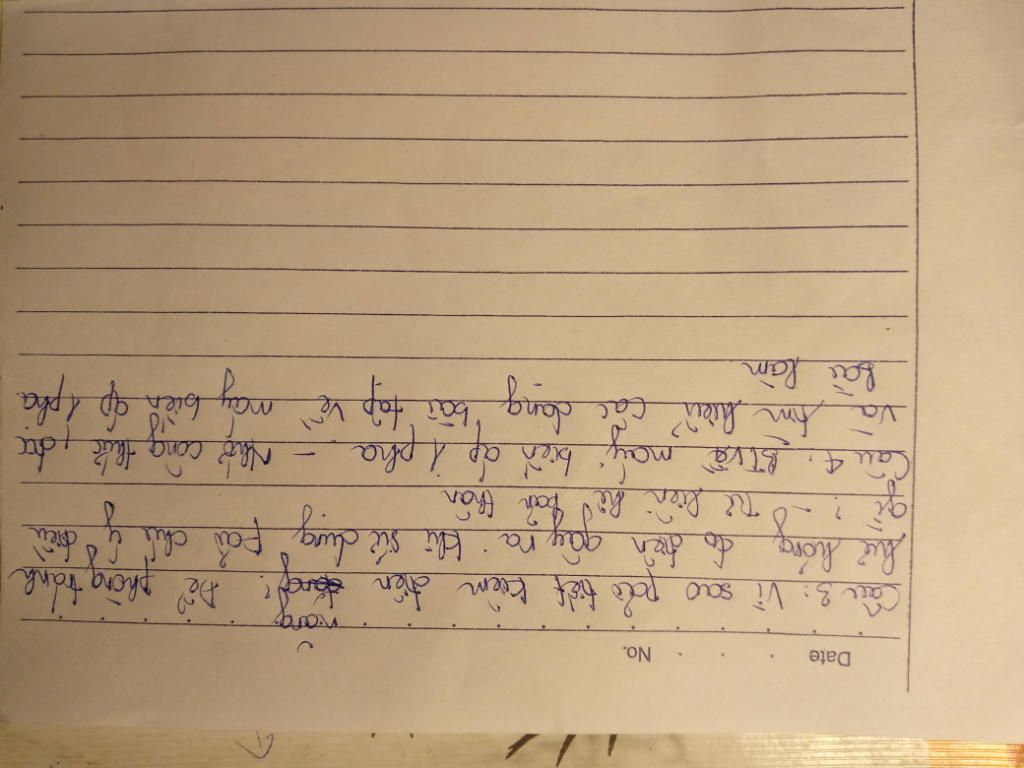 Date No.
năng
Câu 3: Vì sao phải tiết kiệm điện ? Để phòng tránh
hư hỏng do điện gây ra khi sử dụng phải chú ý điều
gì ? - Tự liên hệ bản thân
Câu 4: BT về máy biến áp 1 pha - Nhớ công thức,
và tìm hiểu các dạng bài tập về máy biến áp 1 pha
bài làm